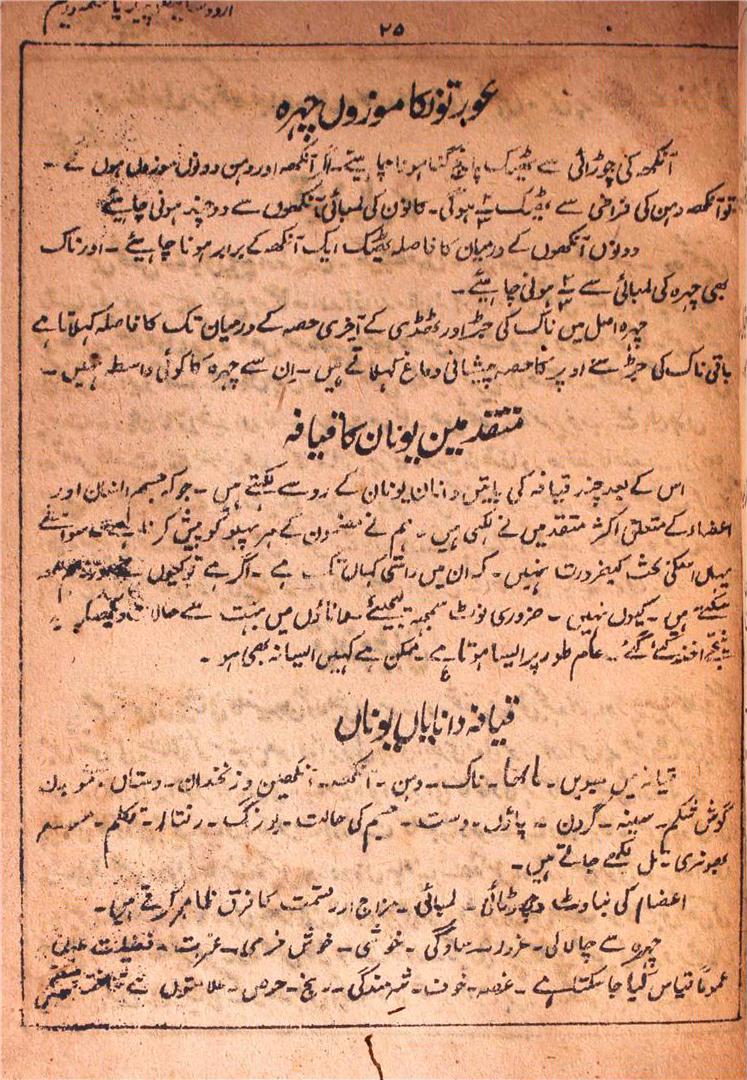 ۲۵
عورتوں کا موزوں چہرہ
آنکھ کی چوڑائی سے ٹھیک پانچ گنا ہونا چاہیئے۔ اگر آنکھ اور دہن دونوں موزوں ہوں گے۔
تو آنکھ دہن کی فراخی سے ٹھیک ۲/۳ ہوگی۔ کانوں کی لمبائی آنکھوں سے دوچند ہونی چاہیئے
دونوں آنکھوں کے درمیان کا فاصلہ ٹھیک ایک آنکھ کے برابر ہونا چاہیئے۔ اور ناک
بھی چہرہ کی لمبائی سے ہونی چاہیئے۔
چہرہ اصل میں ناک کی جڑ اور ٹھڈی کے آخری حصہ کے درمیان تک کا فاصلہ کہلاتا ہے
باقی ناک کی جڑ سے اوپر کا حصہ پیشانی دماغ کہلاتے ہیں۔ اِن سے چہرہ کا کوئی واسطہ نہیں۔
متقدمین یونان کا قیافہ
اس کے بعد چند قیافہ کی باتیں دانان یونان کے رو سے لکھتے ہیں۔ جو کہ جسم انسان اور
اعضاء کے متعلق اکثر متقدمین نے لکھی ہیں۔ ہم نے مضمون کے ہر پہلو کو پیش کرنا ہے
یہاں اسکی بحث کی ضرورت نہیں۔ کہ ان میں راستی کہاں تک ہے۔ اگر ہے تو کیوں
سکتے ہیں۔ کیوں نہیں۔ ضروری نوٹ سمجھ لیجئے۔ داناؤں میں بہت سے حالات دیکھکر یہ
نتیجے اخذ کئے گئے۔ عام طور پر ایسا ہوتا ہے۔ ممکن ہے کہیں ایسا نہ بھی ہو۔
قیافہ دانایاں یوناں
قیافہ میں میویں۔ ماتھا۔ ناک۔ دہن۔ آنکھ۔ آنکھیں و زنخدان۔ دستاں۔
گوش شکم۔ سینہ۔ گردن۔ پاؤں۔ دست۔ جسم کی حالت۔ رنگ۔ رفتار۔ تکلم۔
تل لکھے جاتے ہیں۔
اعضاء کی بناوٹ و چوڑائی۔ لمبائی۔ مزاج اور قسمت کا فرق ظاہر کرتے ہیں۔
چہرہ سے چالاکی۔ غرور۔ سادگی۔ خوشی۔ خوش خرمی۔ عزت۔ فضیلت
عموماً قیاس کیا جا سکتا ہے۔ غصہ۔ خوف۔ شرمندگی۔ رنج۔ حرص۔ علامتوں سے